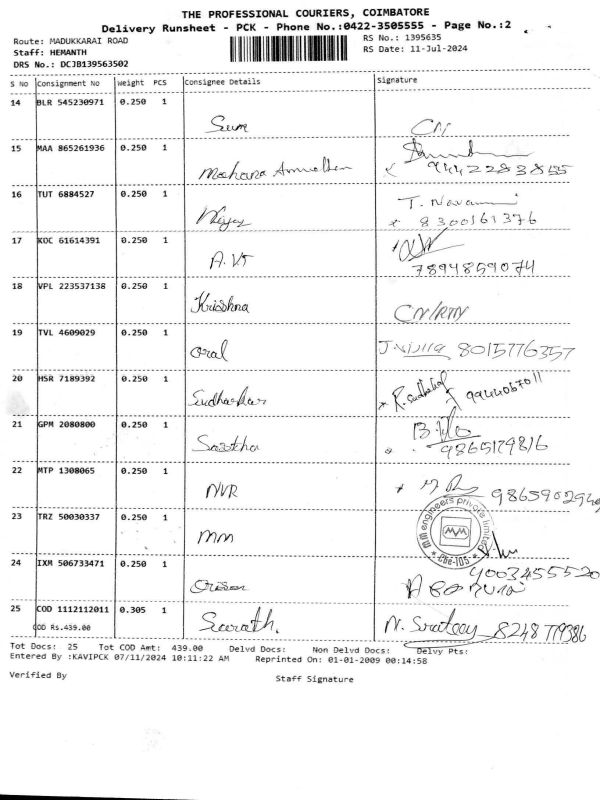 THE PROFESSIONAL COURIERS, COIMBATORE
Delivery Runsheet - PCK - Phone No.:0422-3505555 - Page No.:2
Route: MADUKKARAI ROAD
RS No.: 1395635
Staff: HEMANTH
RS Date: 11-Jul-2024
DRS No.: DCJB139563502
S No Consignment No Weight PCS Consignee Details Signature
14 BLR 545230971 0.250 1
CN
15 MAA 865261936 0.250 1
9442283855
16 TUT 6884527 0.250 1
T. Navamni
8300161376
17 KOC 61614391 0.250 1
A.VT
7894859074
18 VPL 223537138 0.250 1
Krishna CN/RTN
19 TVL 4609029 0.250 1
oral 8015776357
20 HSR 7189392 0.250 1
Sudhakar R. Sudhakar 9944067011
21 GPM 2080800 0.250 1
9865179816
22 MTP 1308065 0.250 1
NVR
23 TRZ 50030337 0.250 1
MM
MM engineers private limited
MM
* Cbe-105 *
24 IXM 506733471 0.250 1
9003455520
25 COD 1112112011 0.305 1
Sarath. 8248779386
COD Rs.439.00
Tot Docs: 25 Tot COD Amt: 439.00 Delvd Docs: Non Delvd Docs: Delvy Pts:
Entered By :KAVIPCK 07/11/2024 10:11:22 AM Reprinted On: 01-01-2009 00:14:58
Verified By
Staff Signature